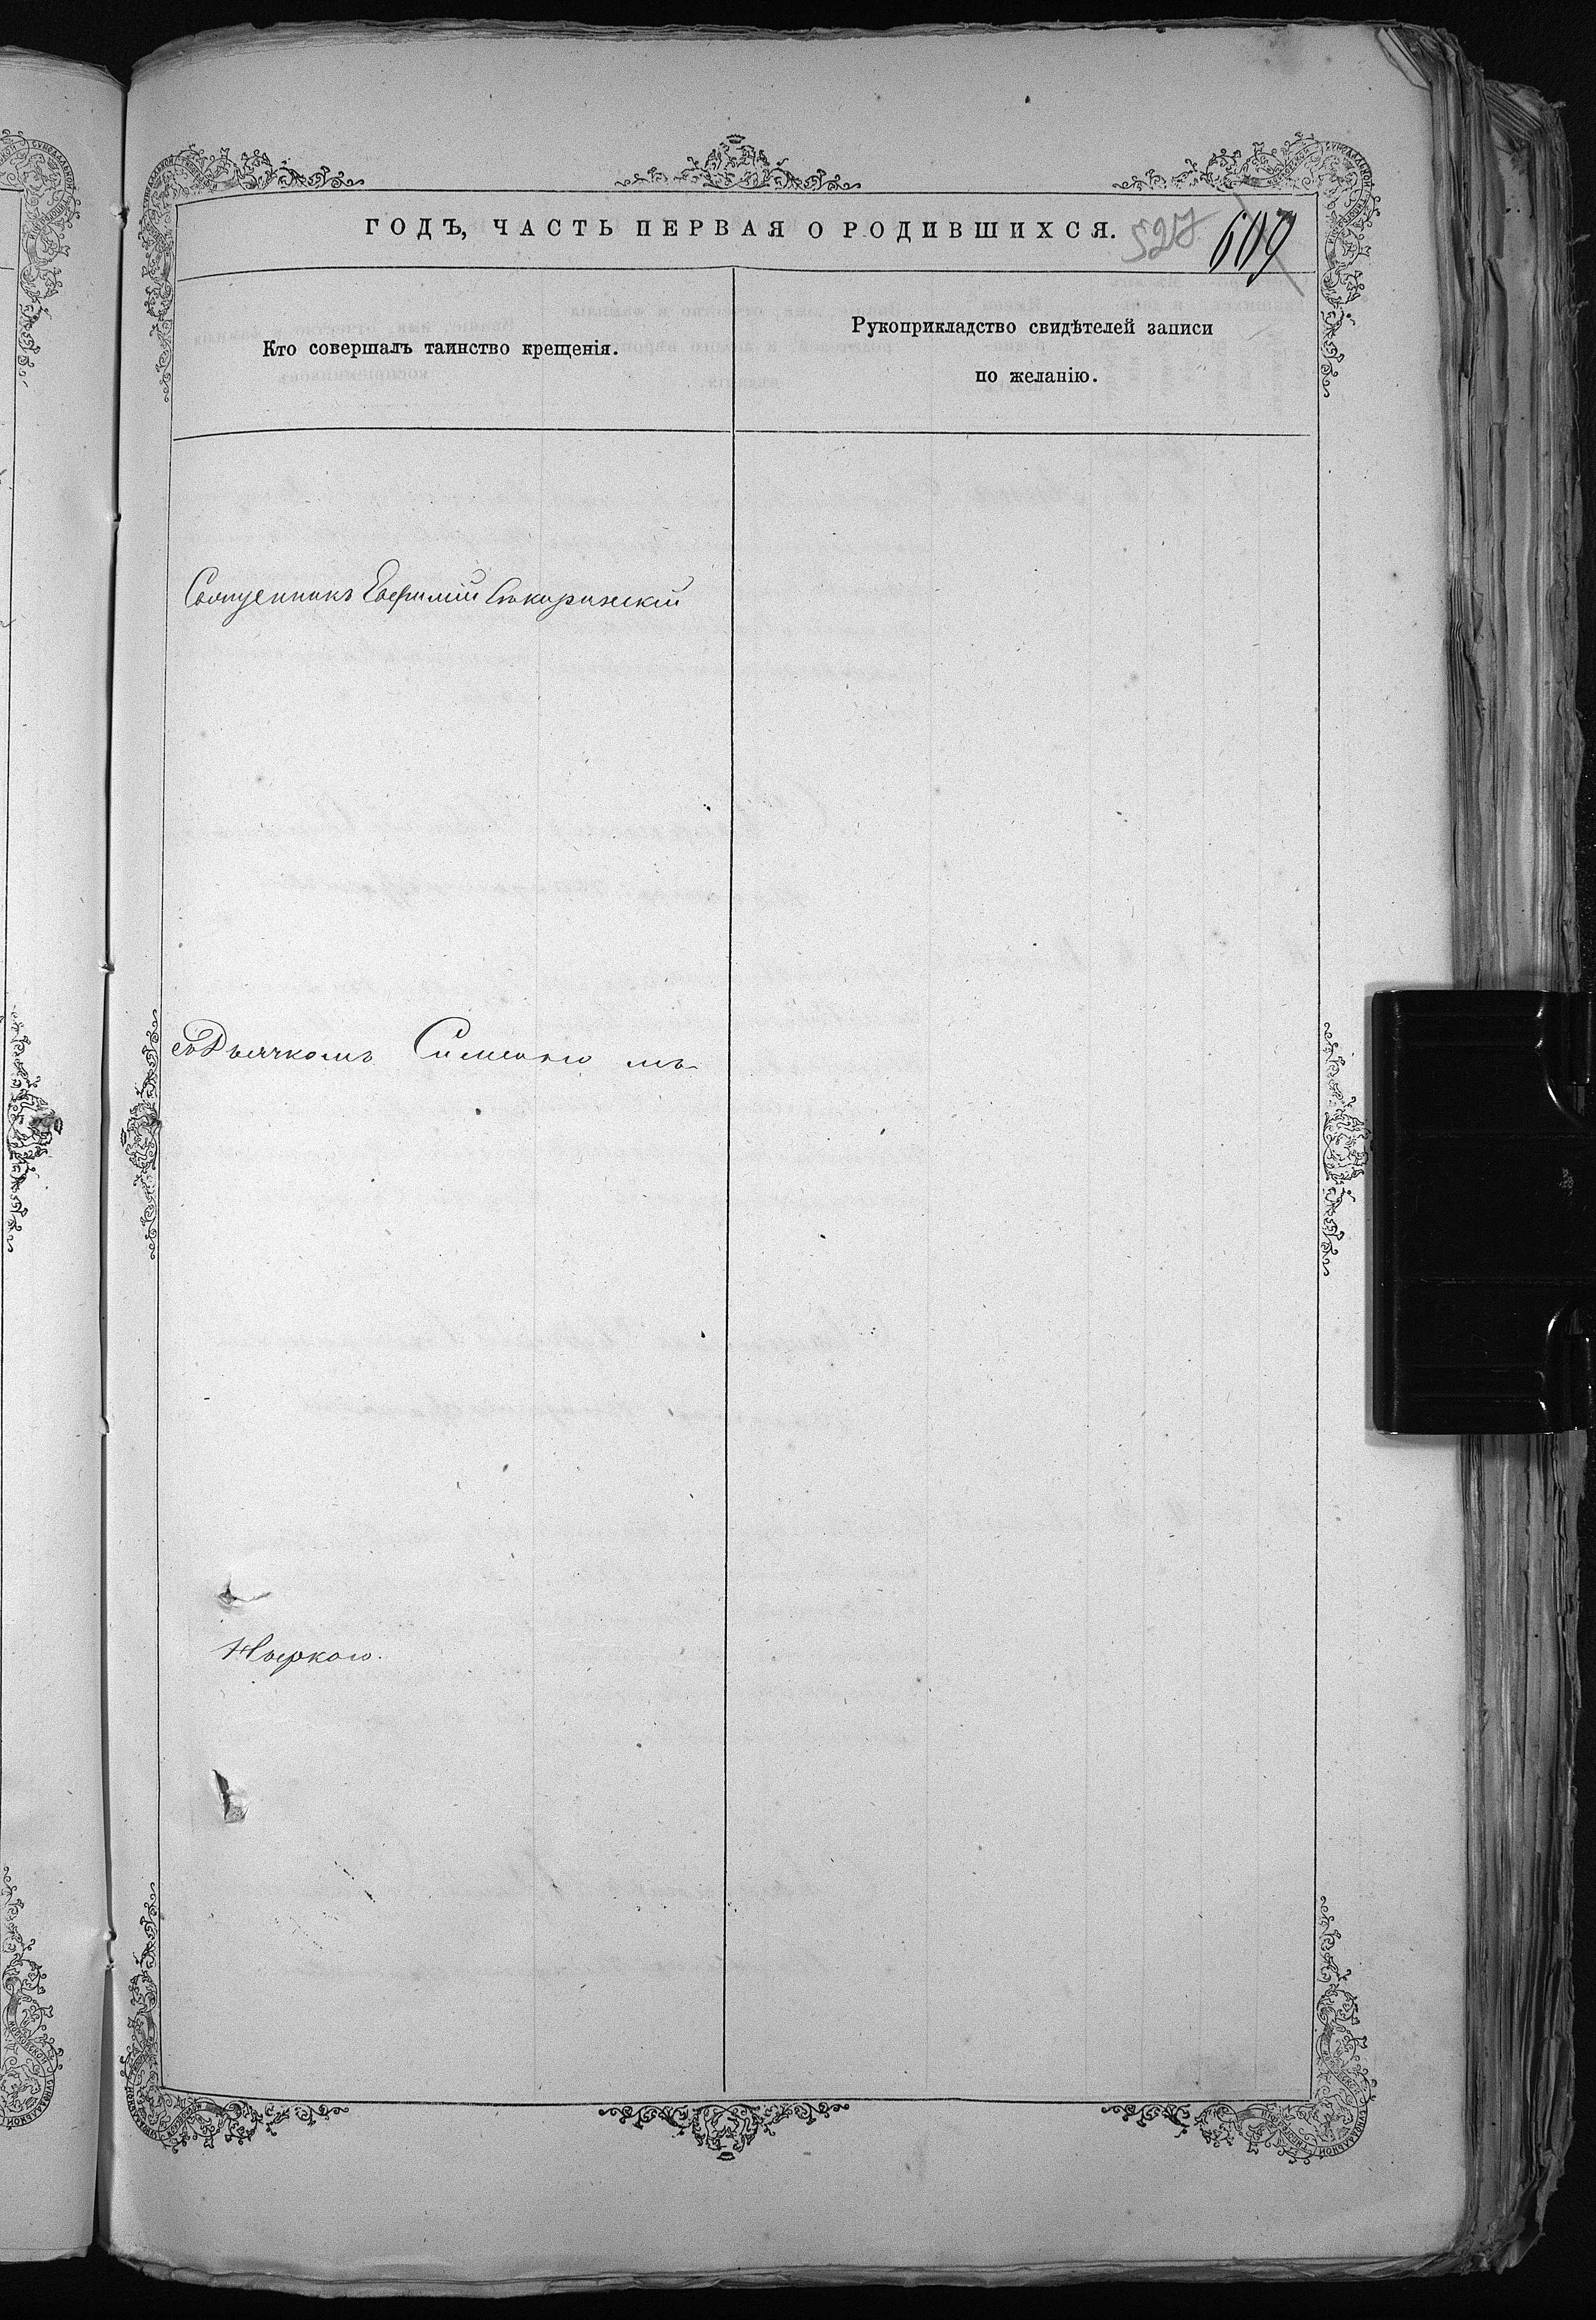 ГОДЪ, ЧАСТЬ ПЕРВАЯ О РОДИВШИХСЯ.
527 609
Кто совершалъ таинство крещенія.
Рукоприкладство свидѣтелей записи
по желанію.
Священникъ Евфимій Секиржискій
съ Дьячкомъ Симеоно мъ